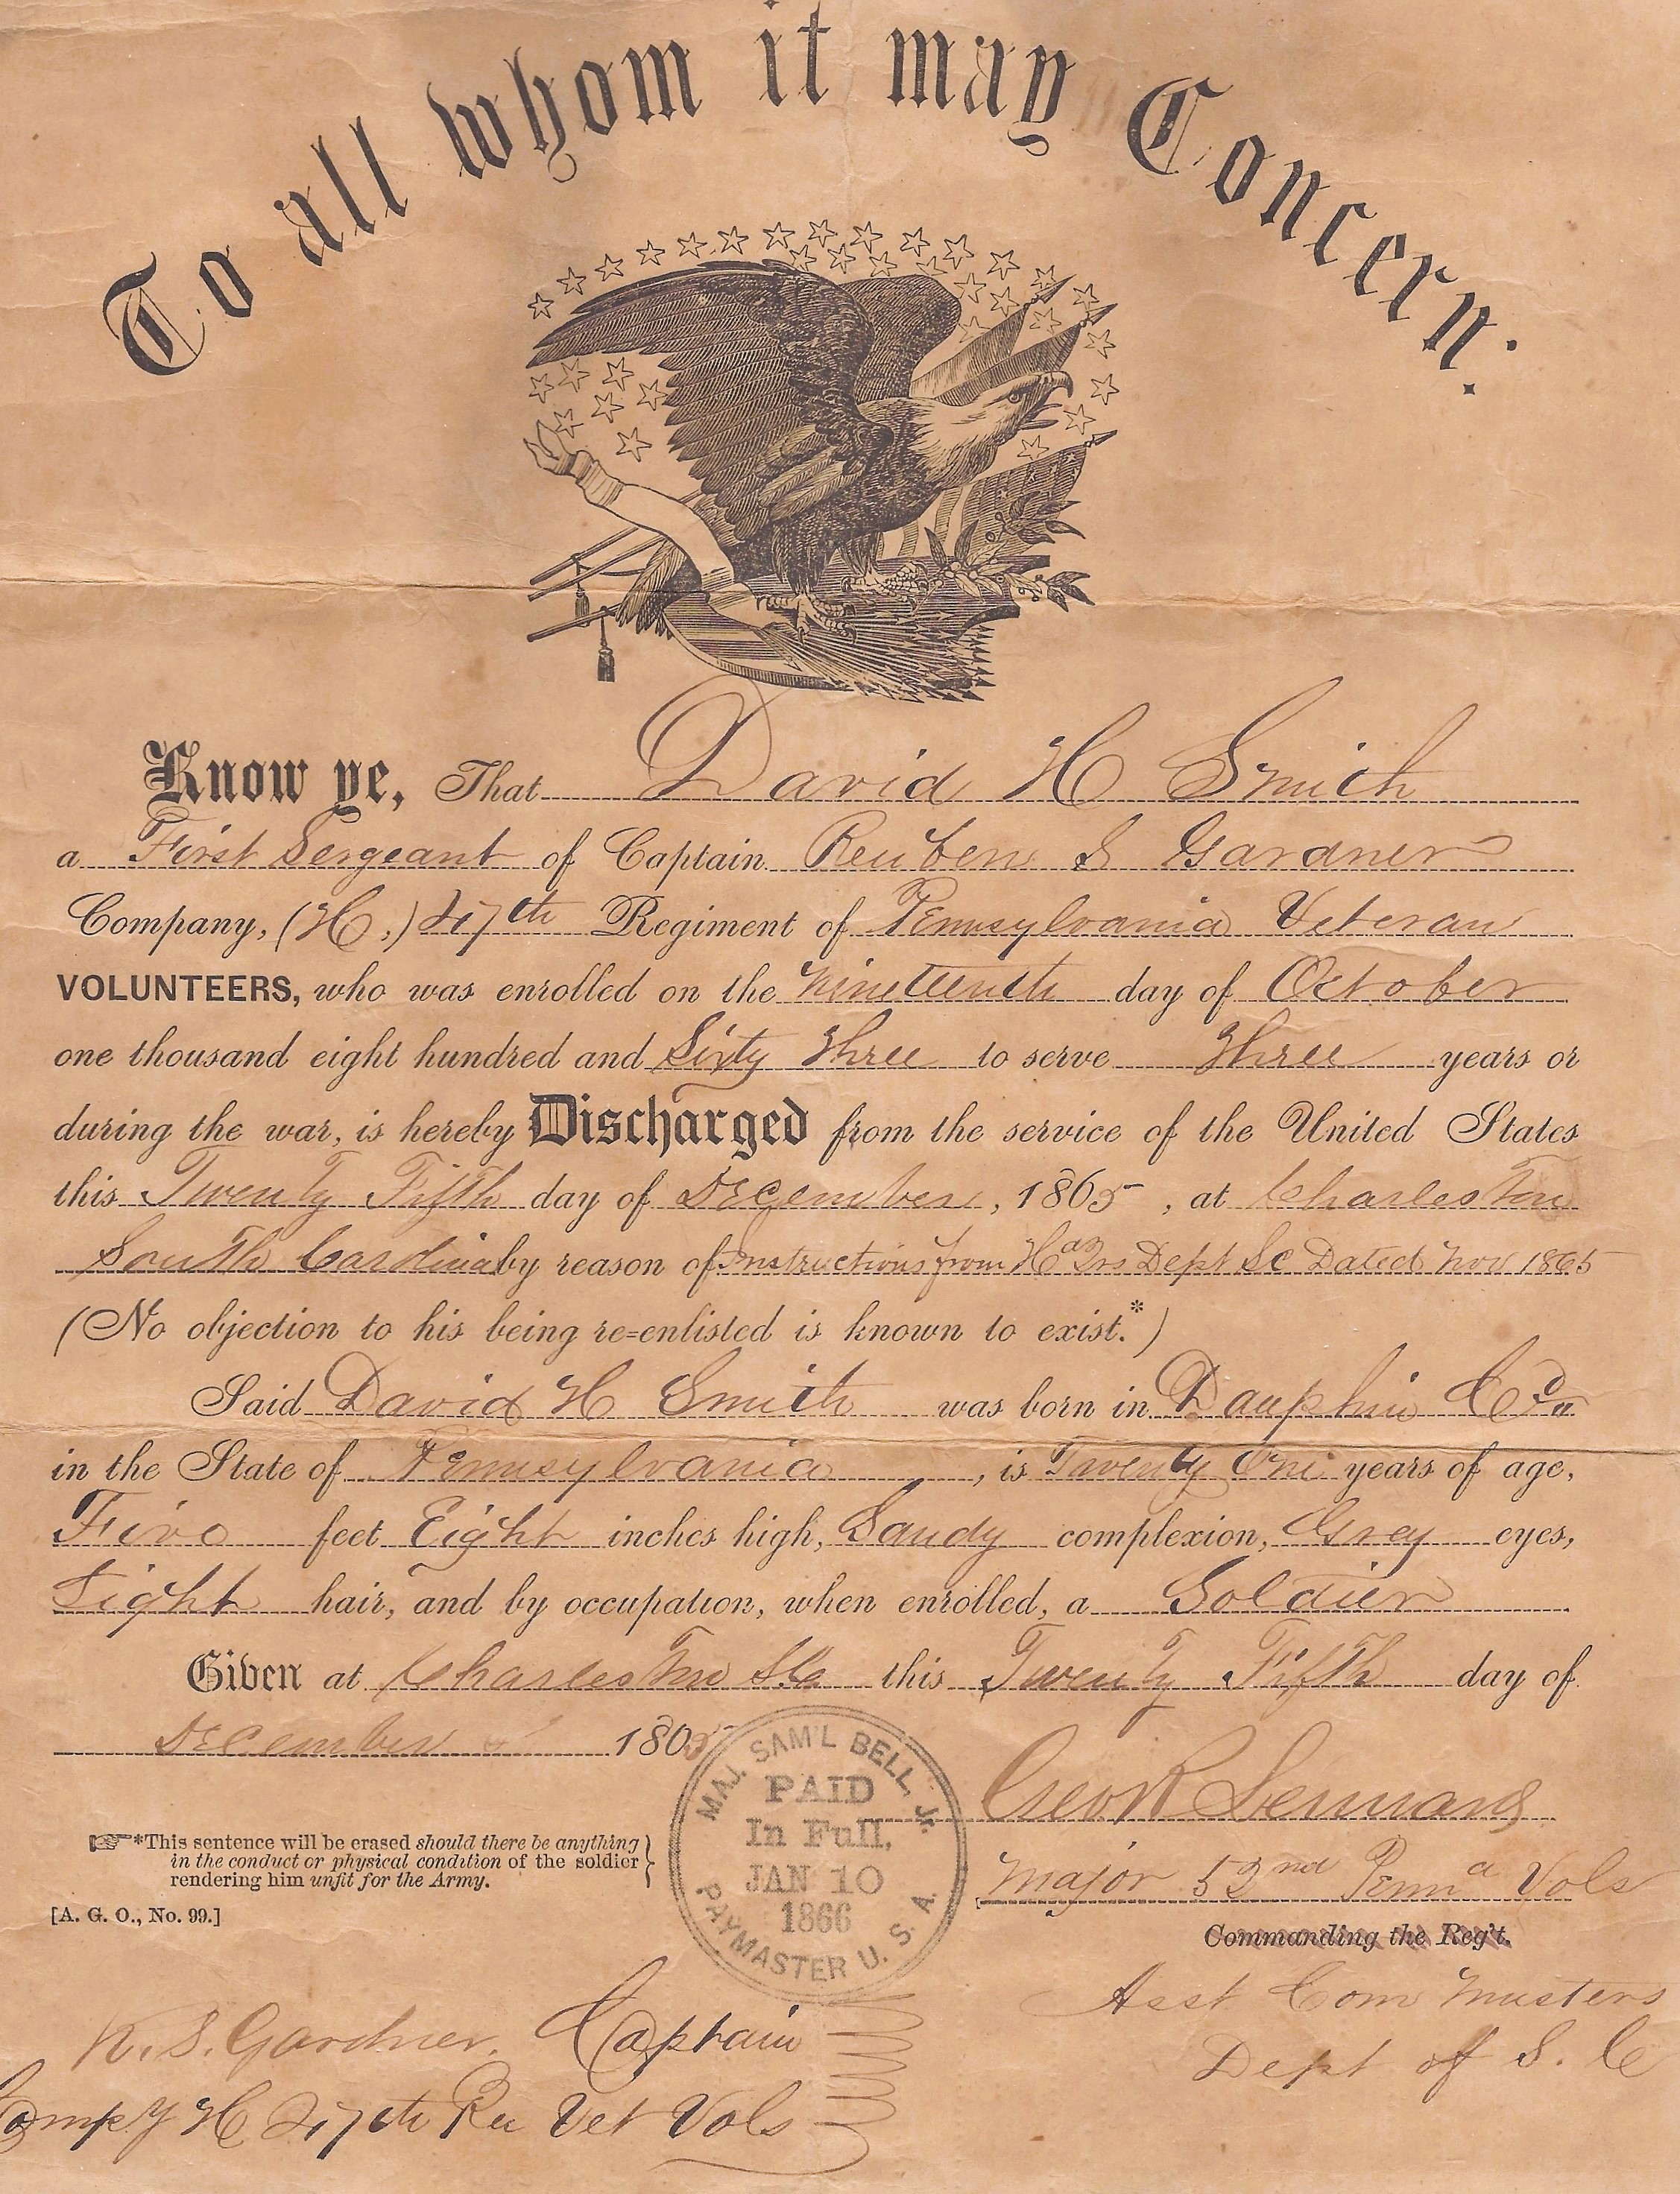 To all whom it may Concern:
Know ye, That David H Smith
a First Sergeant of Captain Reuben S Gardner
Company, (H,) 47th Regiment of Pennsylvania Veteran
VOLUNTEERS, who was enrolled on the Nineteenth day of October
one thousand eight hundred and Sixty Three to serve Three years or
during the war, is hereby Discharged from the service of the United States
this Twenty Fifth day of December, 1865, at Charleston
South Carolina by reason of Instructions from Hd Qrs Dept SC Dated Nov 1865
(No objection to his being re=enlisted is known to exist.*)
Said David H Smith was born in Dauphin Co
in the State of Pennsylvania, is Twenty One years of age,
Five feet Eight inches high, Sandy complexion, Grey eyes,
Light hair, and by occupation, when enrolled, a Soldier
Given at Charleston S.C. this Twenty Fifth day of
December 1865
MAJ. SAM'L BELL, Jr.
PAID
In Full,
JAN 10
1866
PAYMASTER U. S. A.
Geo R Lennard
Major 52nd Penna Vols
Commanding the Reg't.
Asst Com Musters
Dept of S. C
*This sentence will be erased should there be anything
in the conduct or physical condition of the soldier
rendering him unfit for the Army.
[A. G. O., No. 99.]
R. S. Gardner, Captain
Compy H 47th Vet Vols